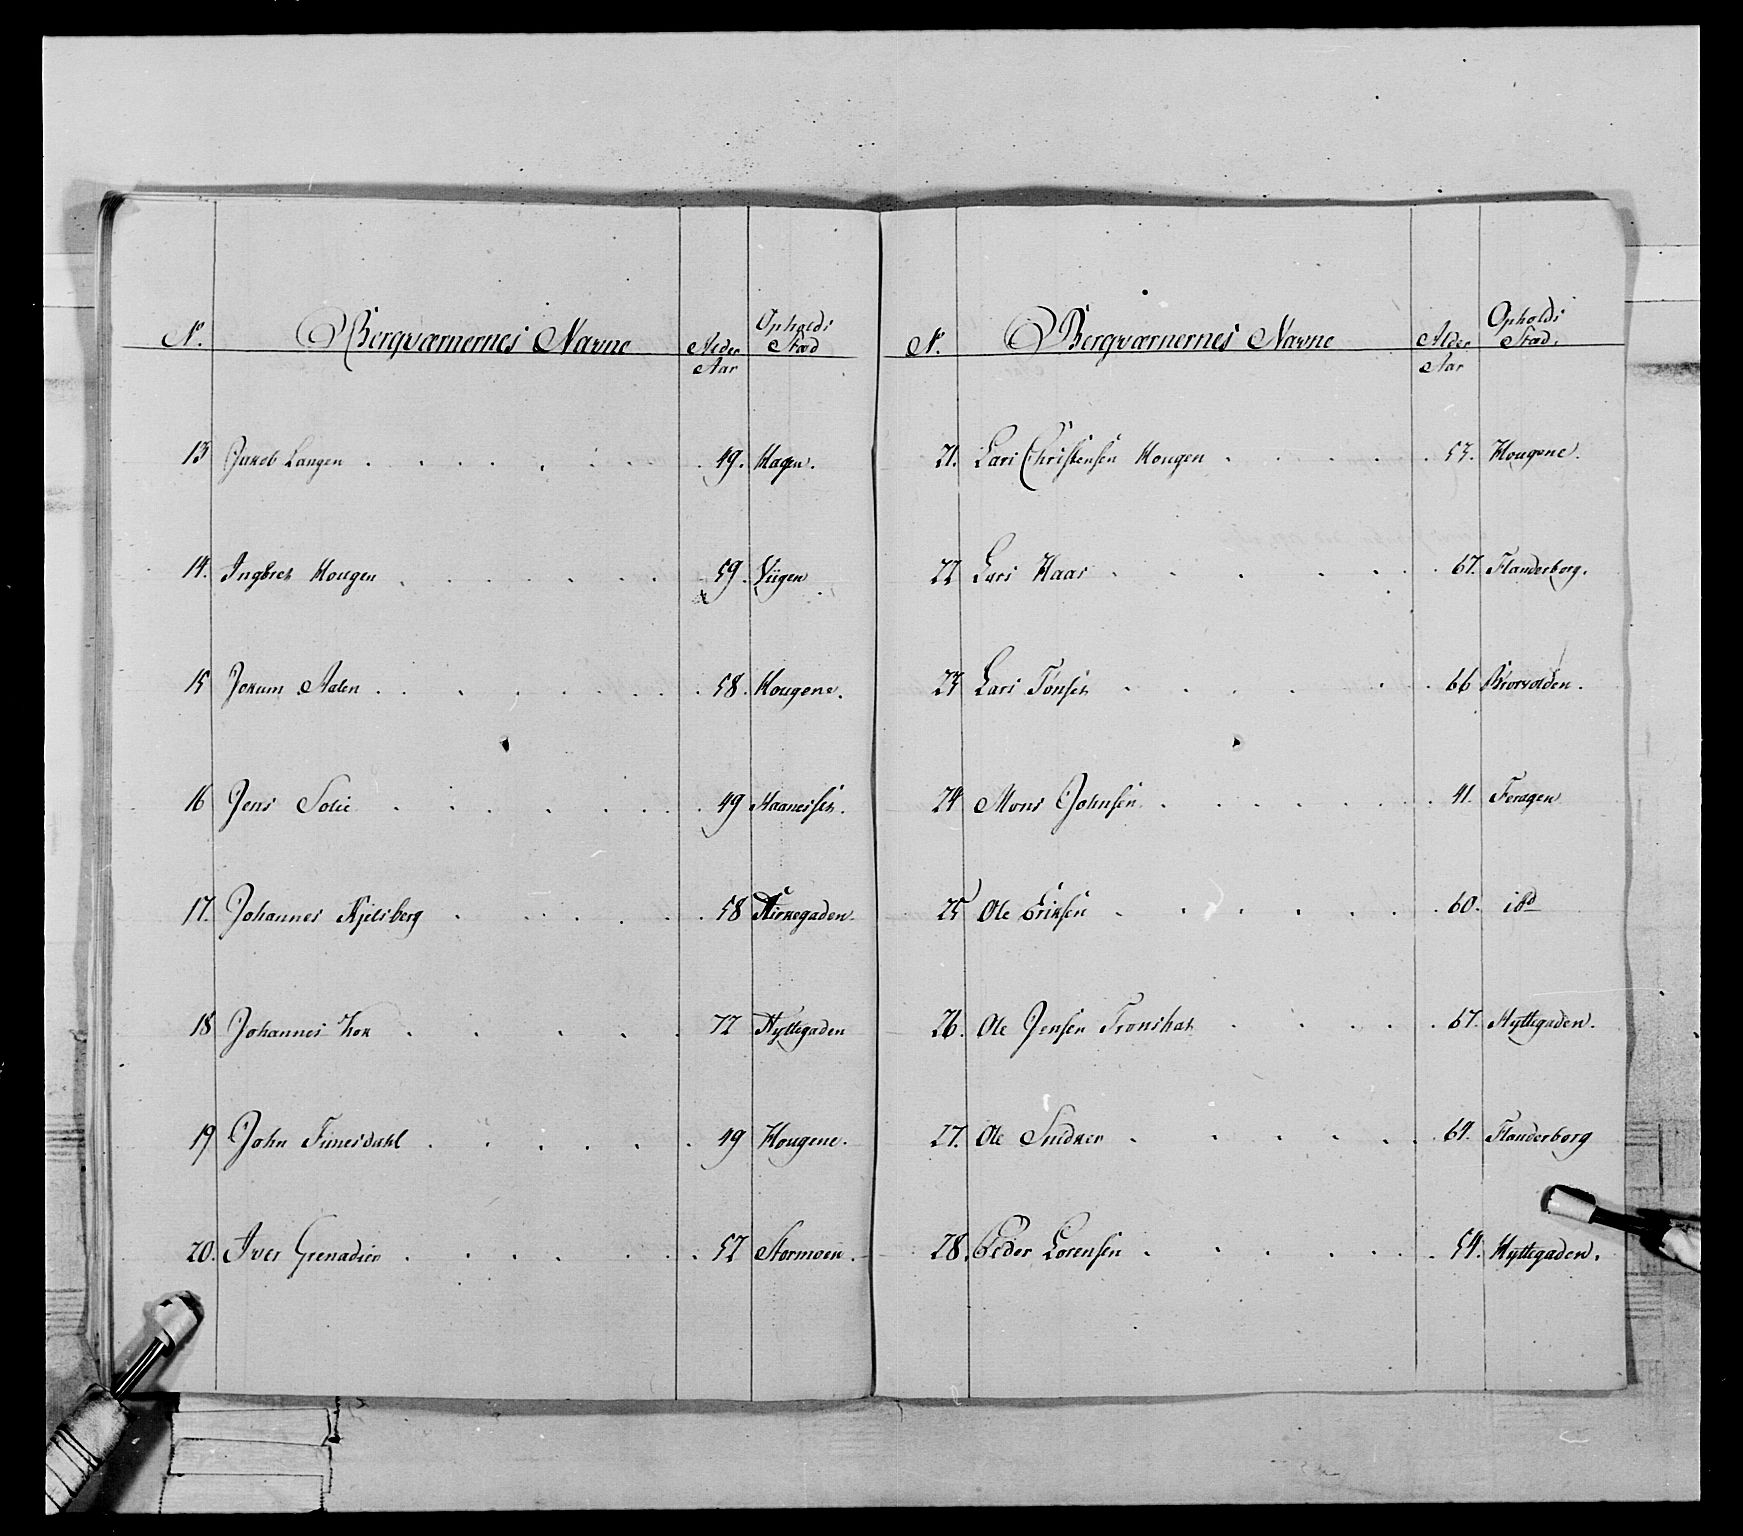 N. Bergværnernes Navne Alder Aar Opholds Stæd
13 Jakob Langen 49. Hagen.
14. Ingbret Hougen 59. Viigen
15 Jokum Aalen 58. Hougene.
16 Jens Solie 49 Haanesset.
17. Johannes Kjelsberg 58 Kirkegaden
18 Johannes Kok 72 Hyttegaden
19 John Funesdahl 49 Hougene.
20. Iver Grenadier 52 Stormoen.
N. Bergværnernes Navne Alder Aar Opholds Stæd.
21. Lars Christensen Hougen 53. Hougene.
22 Lars Haas 67. Flanderborg.
23 Lars Tønset 66 Mørvolden.
24 Mons Johnsen 41. Feragen
25 Ole Eriksen 60. ibd
26. Ole Jensen Tronshat 67. Hyttegaden.
27. Ole Snidker 64. Flanderborg
28. Peder Lorensen 54. Hyttegaden.